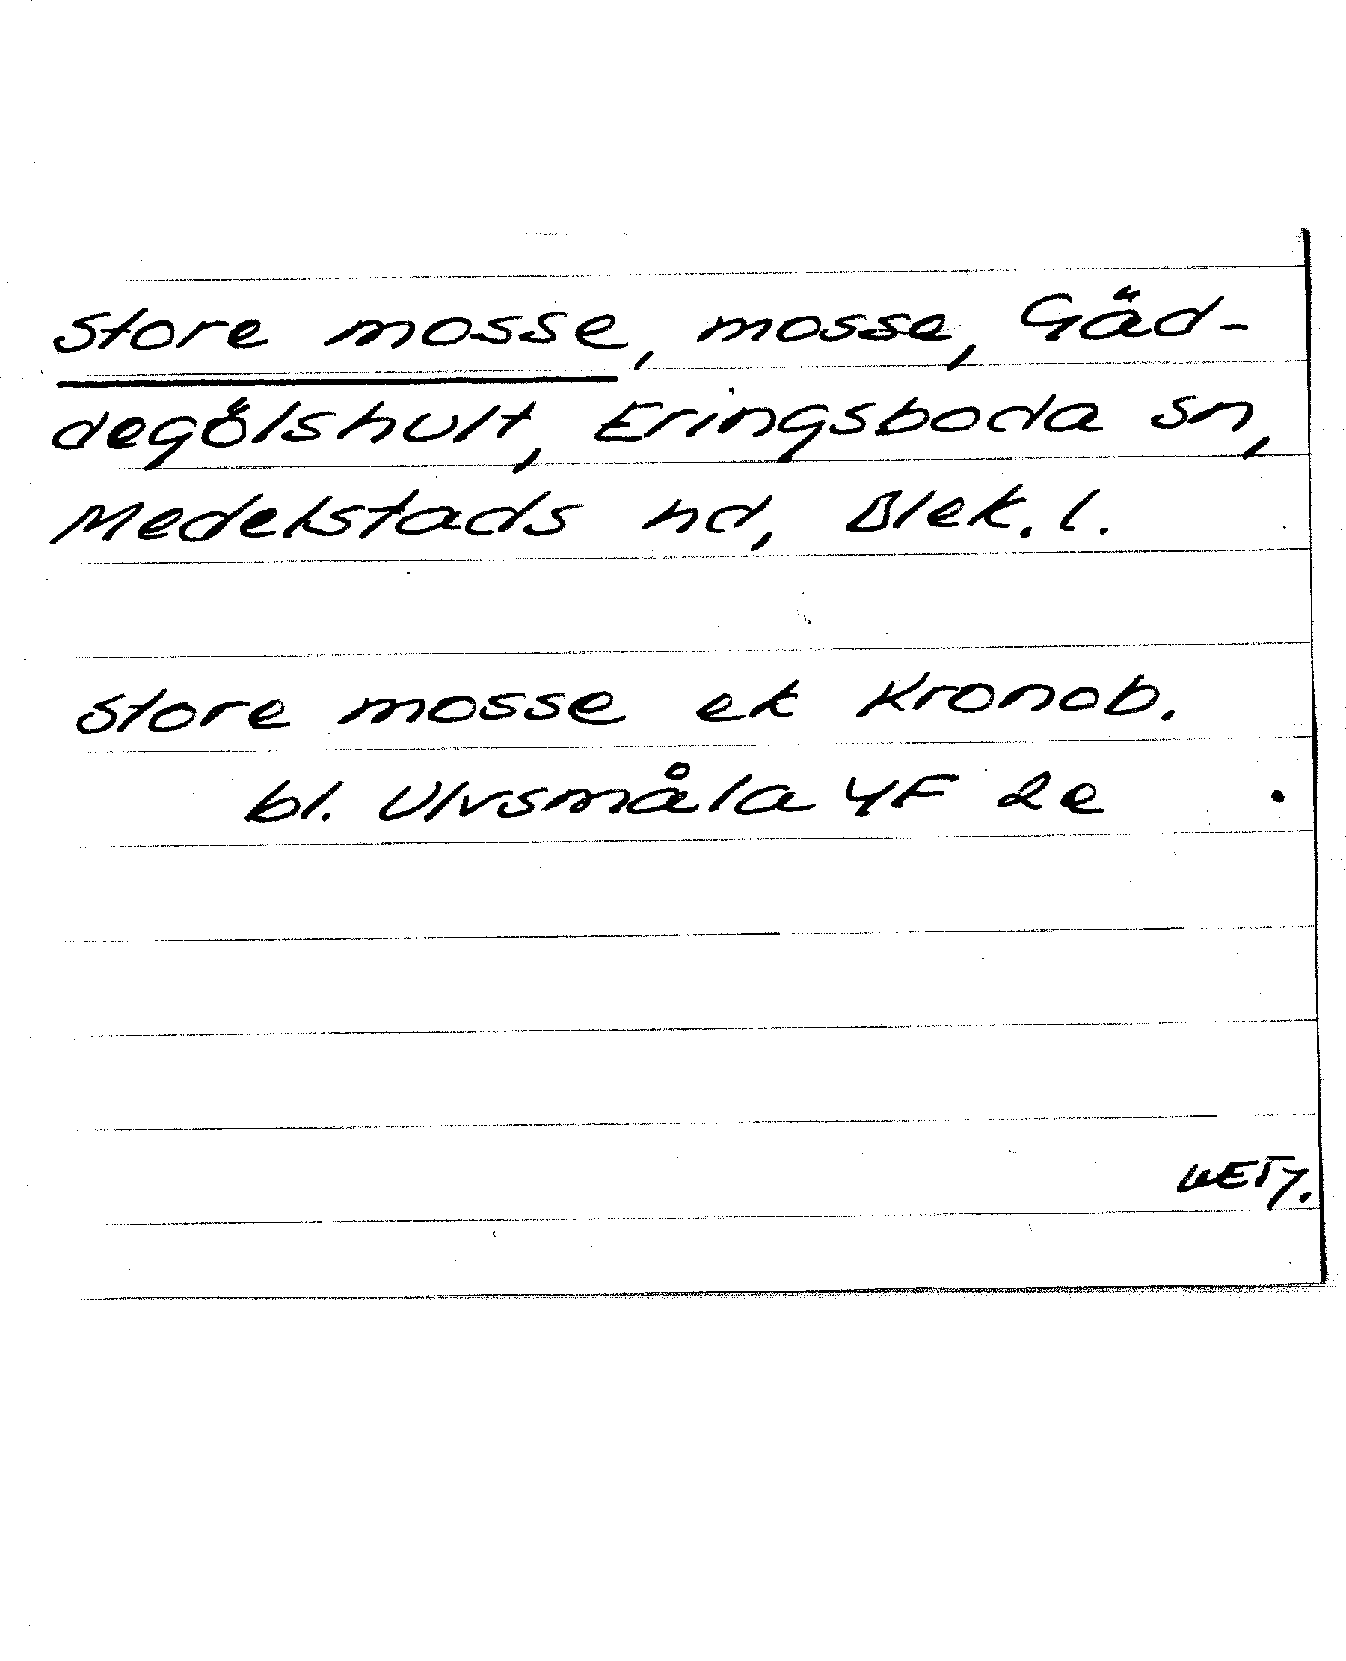 store mosse, mosse, Gäd-
degölshult, Eringsboda sn,
Medelstads hd, Blek. l.
store mosse ek Kronob.
bl. Ulvsmåla 4F 2e